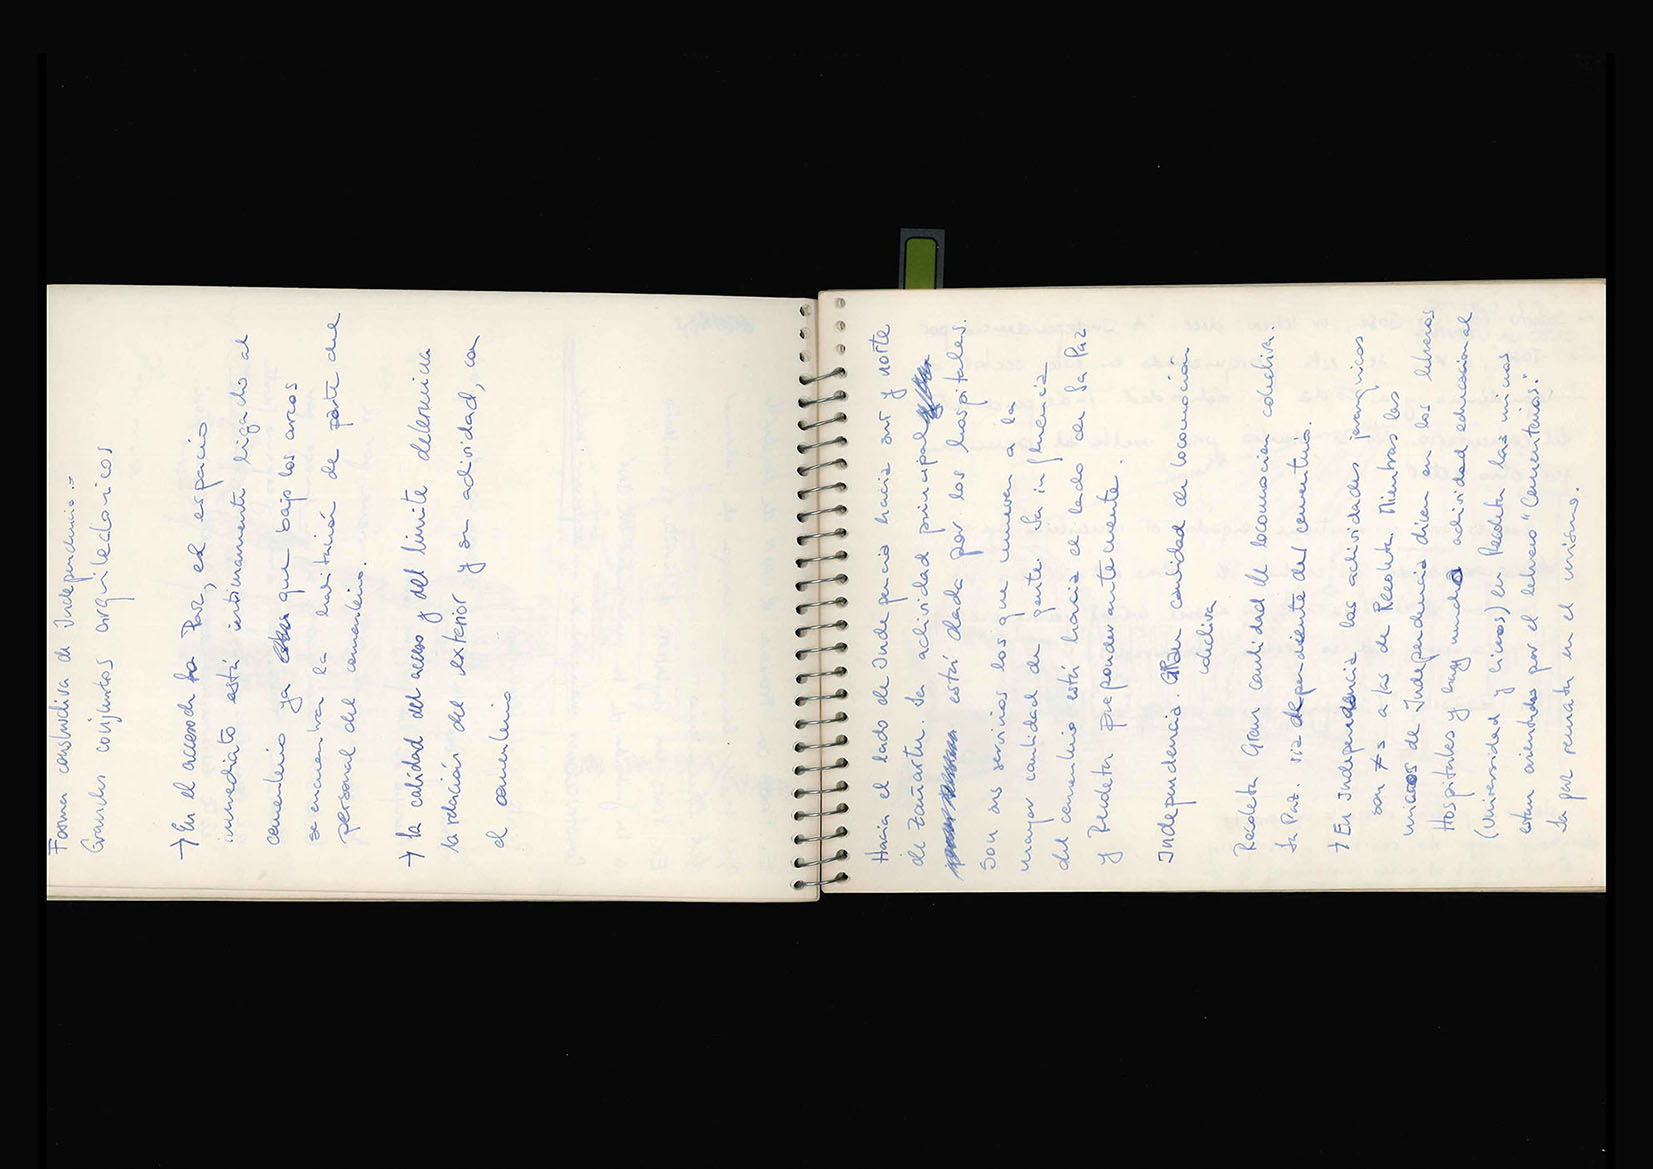 Forma constructiva de Independencia.-
Grandes conjuntos arquitectónicos
→ En el acceso de la Paz, el espacio
inmediato está intimamente ligado al
cementerio ya que bajo los arcos
se encuentra la habitación de parte del
personal del cementerio.
→ La calidad del acceso y del límite determina
la relación del exterior y su actividad, con
el cementerio
Hacia el lado de Independencia hacia sur y norte
de Zañartu. La actividad principal
está dada por los hospitales.
Son sus servicios los que mueven a la
mayor cantidad de gente. La influencia
del cementerio está hacia el lado de la Paz
y Recoleta preponderantemente.
Independencia. Gran cantidad de locomoción
colectiva
Recoleta Gran cantidad de locomoción colectiva.
La Paz. via dependiente del cementerio.
→ En Independencia las actividades jerarquicas
son ≠s a las de Recoleta. Mientras las
micros de Independencia dicen en los letreros
Hospitales y hay mucha actividad educacional
(Universidad y liceos) en Recoleta las micros
estan orientadas por el letrero "Cementerios."
La paz remata en el mismo.